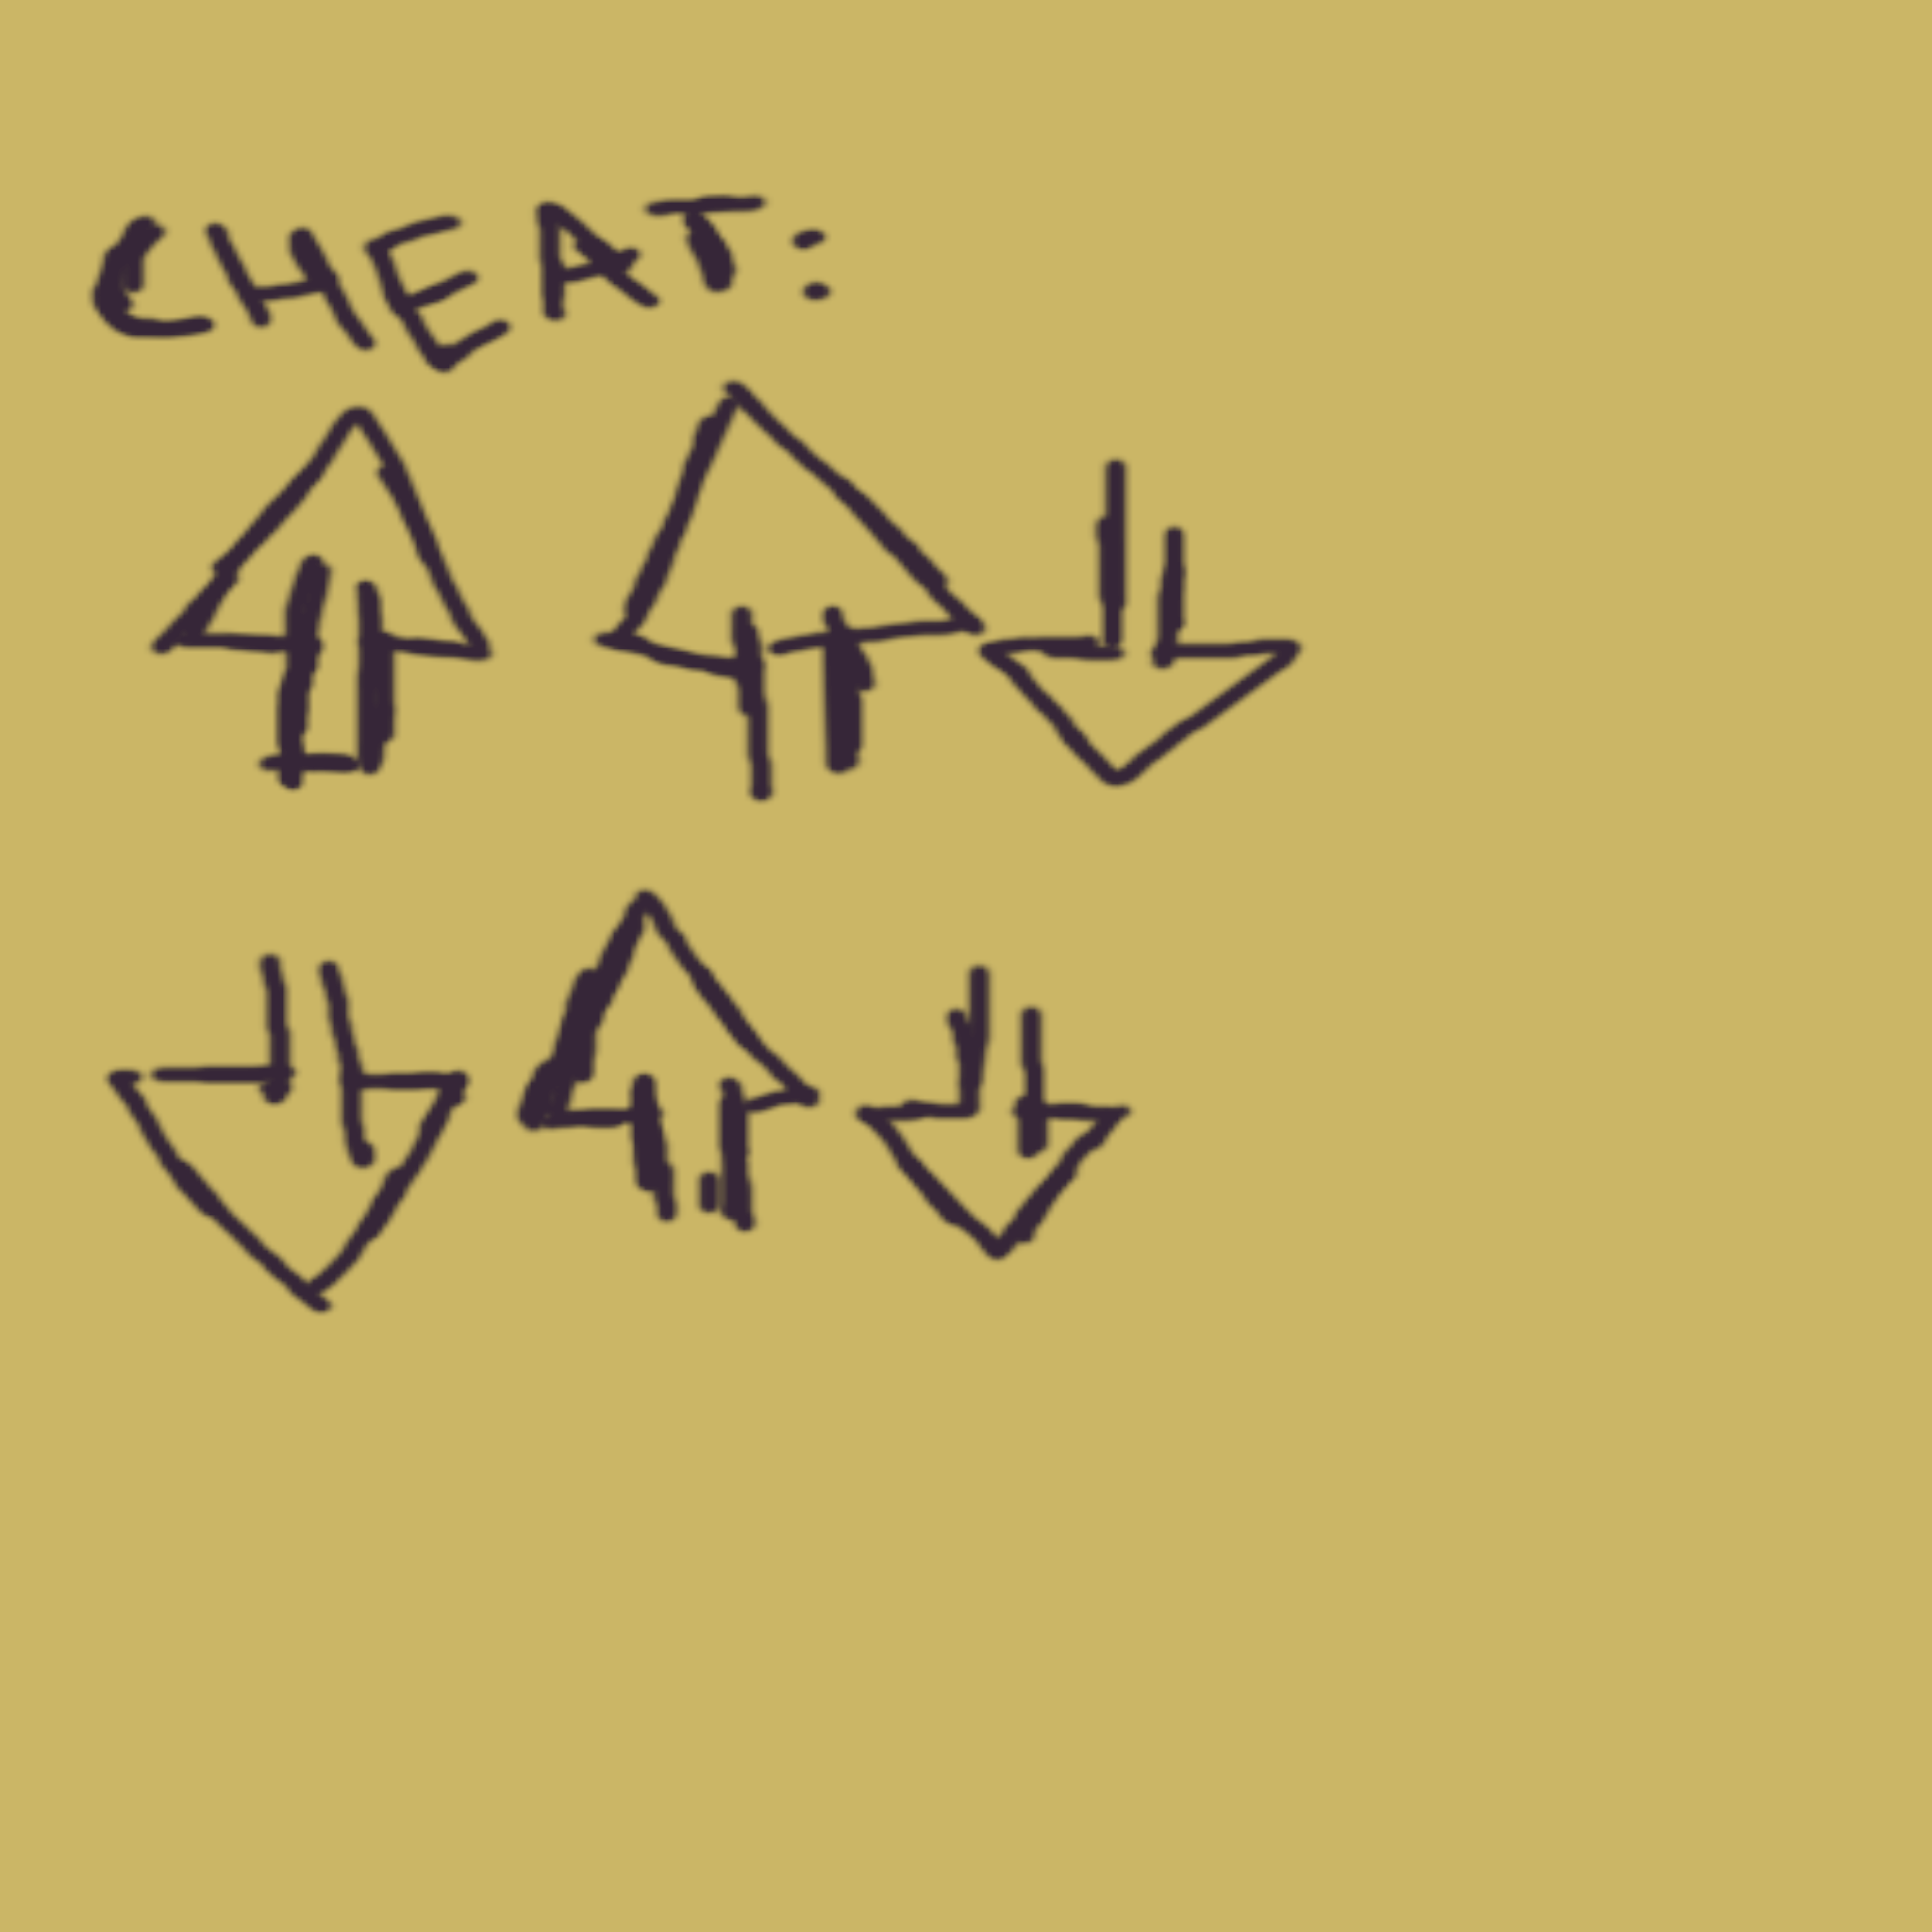 CHEAT:
⇧⇧⇩
⇩⇧⇩